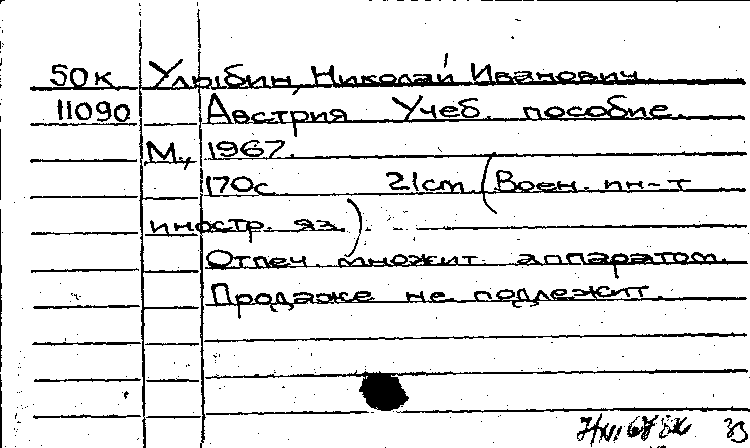 50к Улыбин, Николай Иванович.
11090 Австрия Учеб. пособие.
М., 1967.
170с. 21cm. (Воен. ин-т
иностр. яз.)
Отпеч. множит. аппаратом.
Продаже не подлежит.